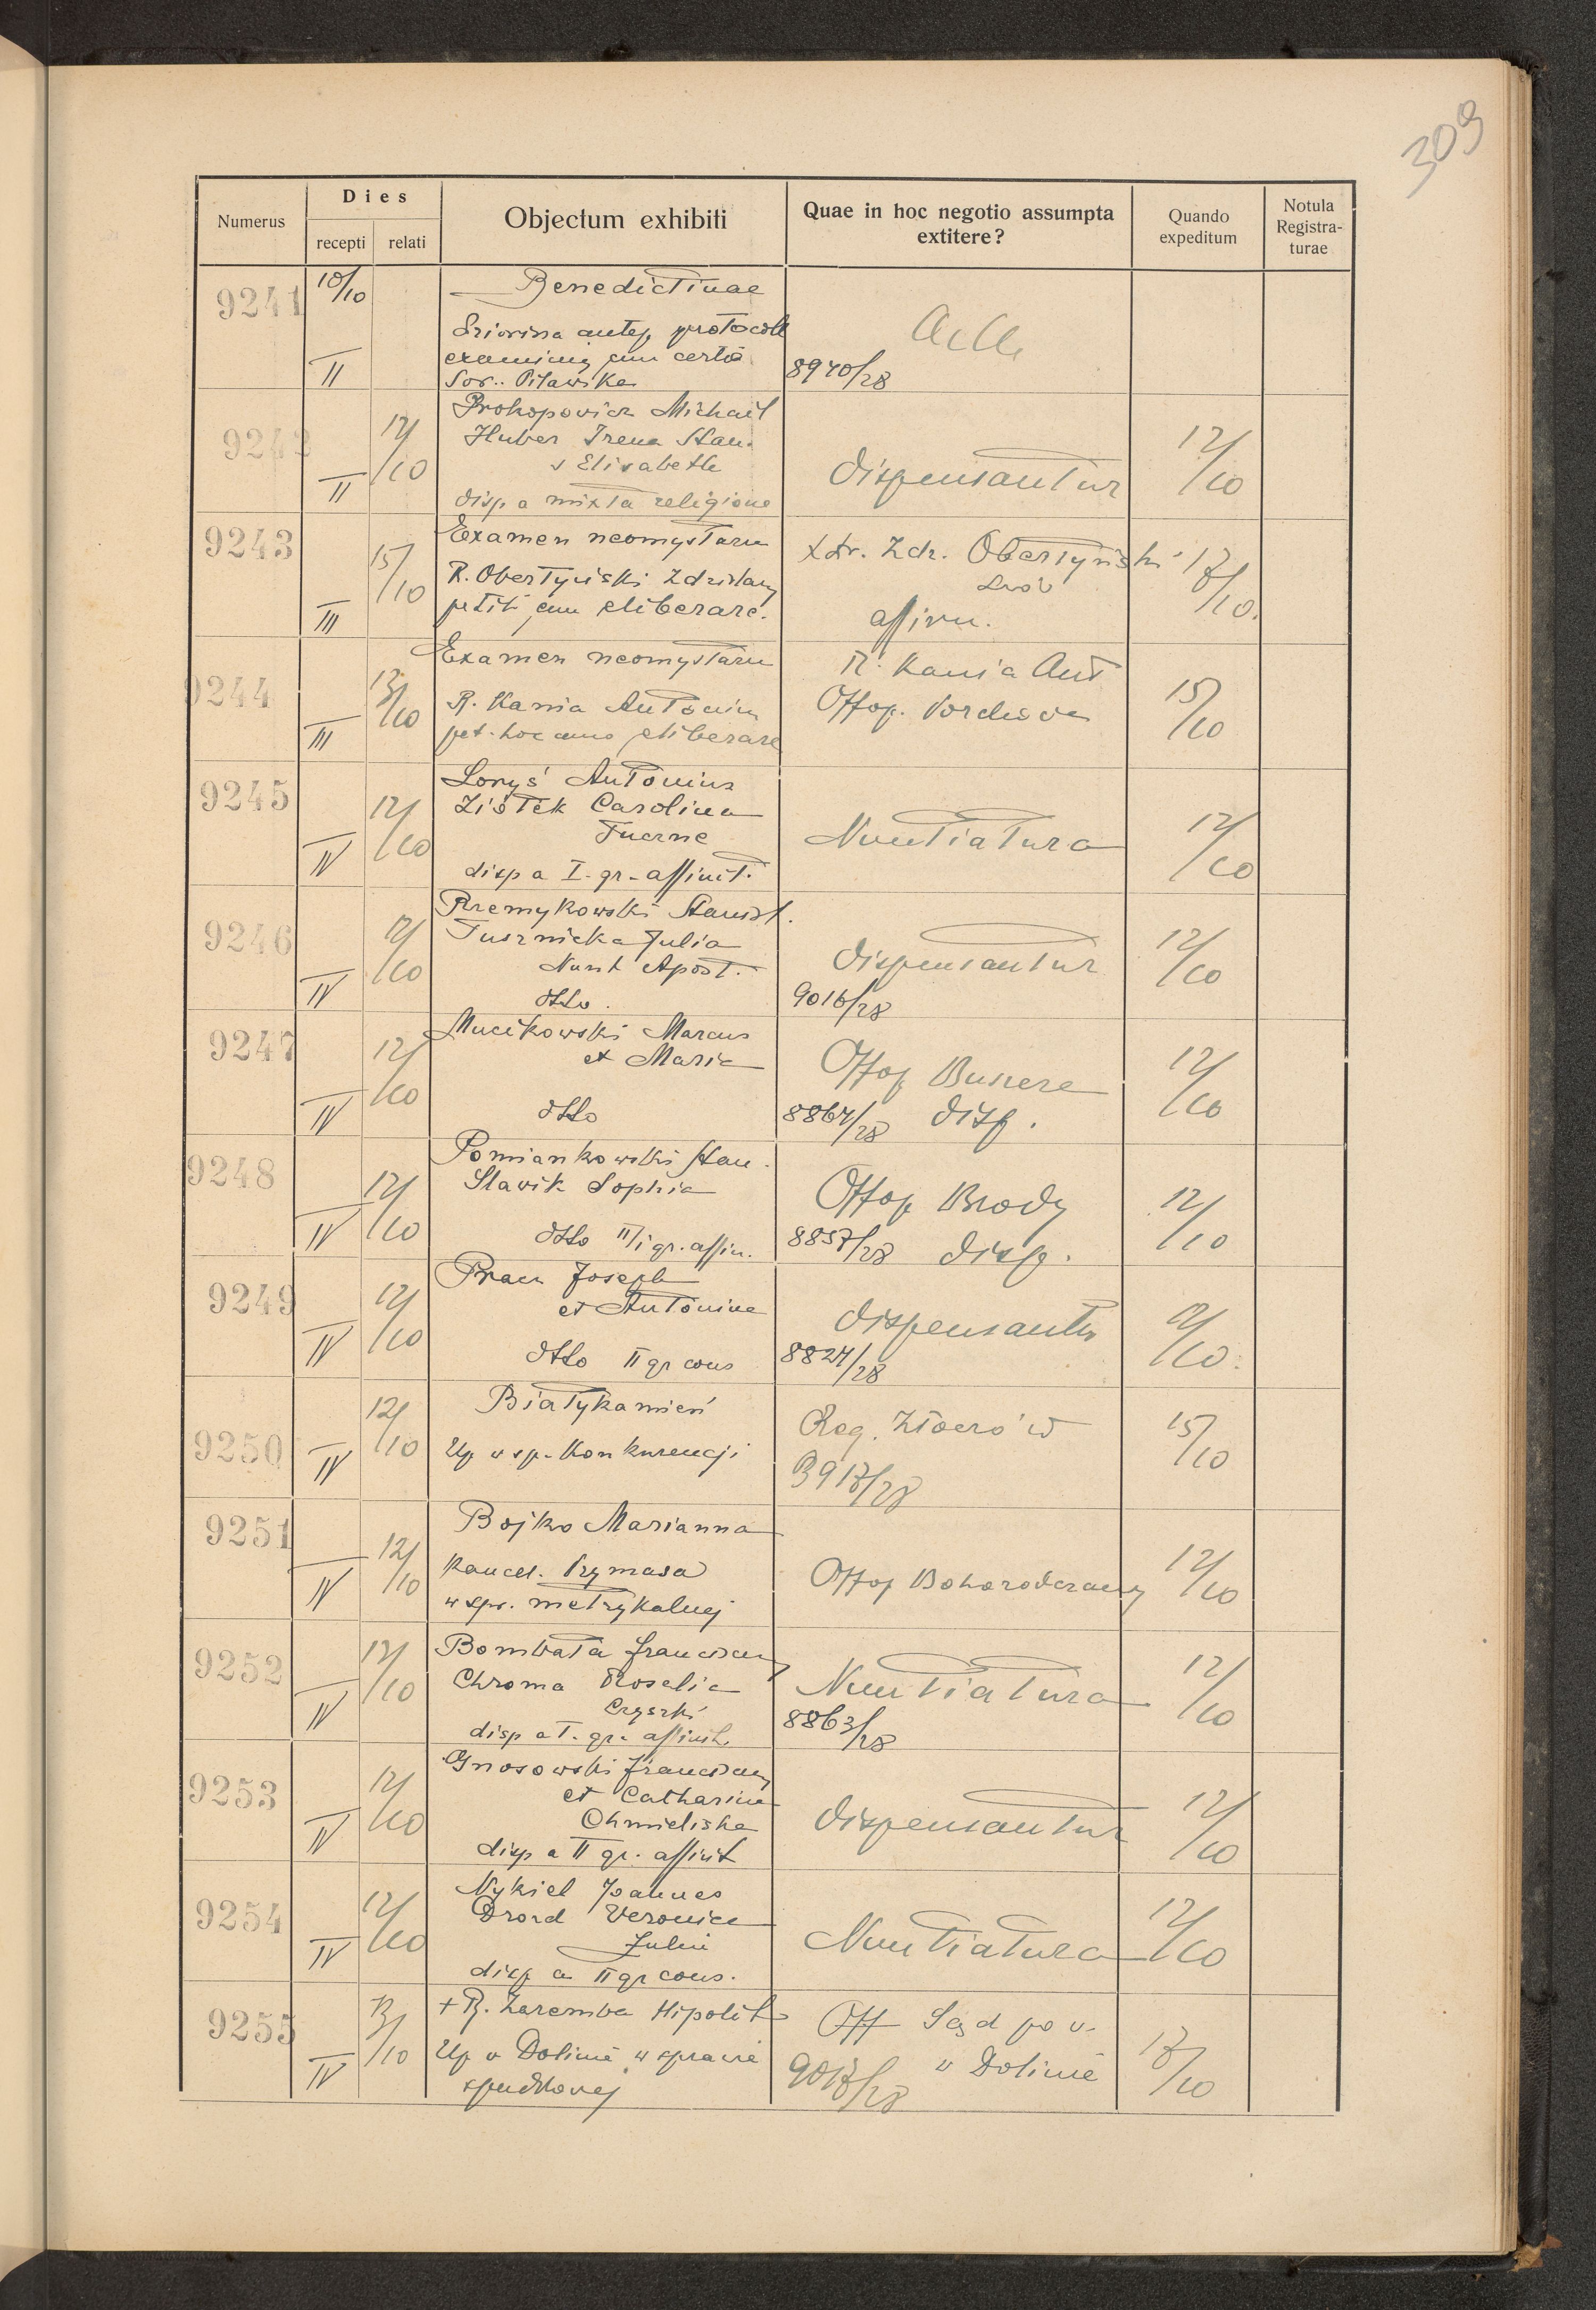 309
Numerus
Dies
recepti relati
Objectum exhibiti
Quae in hoc negotio assumpta
extitere?
Quando
expeditum
Notula
Registra-
turae
9241 10/10 Benedictinae
protocoll
II cum certo
Sor.. Pilawska 8940/28
9242 12/10 Prokopovicz Michail
Huber Irena Stan.
s Elisabeth dispensantur 12/10
II disp a mixta religione
9243 15/10 Examen neomystaru
X dr. Zdr. Obertyński 17/10.
R. Obertyński Zdzisław Lwów
III petit eum eliberare. affirm.
9244 13/10 Examen neomystaru R. Kania Ant
R. Kania Antonius Offop. 15/10
III pet. hoc anno eliberare
9245 12/10 Loryś Antonius
Ziótek Carolina
Tuerne Nuntiatura 12/10
IV disp a I. gr. affinit.
9246 12/10 Przemykowski Stanisł.
Tusznicka Julia dispensantur 12/10
Nunt Apost.
IV dtto. 9016/28
9247 12/10 Mucikowski Marcus
et Maria Offop Bursz 12/10
IV dtto 8864/28 disp.
9248 12/10 Pomiankowski Stan.
Slavik Sophia Offop Brody 12/10
IV dtto II/I gr. affin. 8857/28 disp.
9249 12/10 Joseph
et Antonina dispensantur 12/10.
IV dtto II gr cons 8824/28
9250 12/10 Białykamień
Rog. Złoczów 15/10
IV Up w sp. Konkurencji
3917/28
9251 12/10 Bojko Marianna
Kancel. Prymasa Offop Bohorodczany 12/10
IV w spr. metrykalnej
9252 12/10 Bombała Franciscus
Chroma Rosalia Nuntiatura 12/10
Czyszki 8863/28
IV disp a I. gr. affinit.
9253 12/10 Gnosowski Franciscus
et Catharina
Chmieliska dispensantur 12/10
IV disp a II gr. affinit
9254 12/10 Nykiel Joannes
Drozd Veronica
Julin Nuntiatura 12/10
IV disp a II gr cons.
9255 13/10 + R. Zaremba Hipolit Off Sąd pow.
Up w Dolinie w sprawie w Dolinie 17/10
IV spadkowej 9017/28